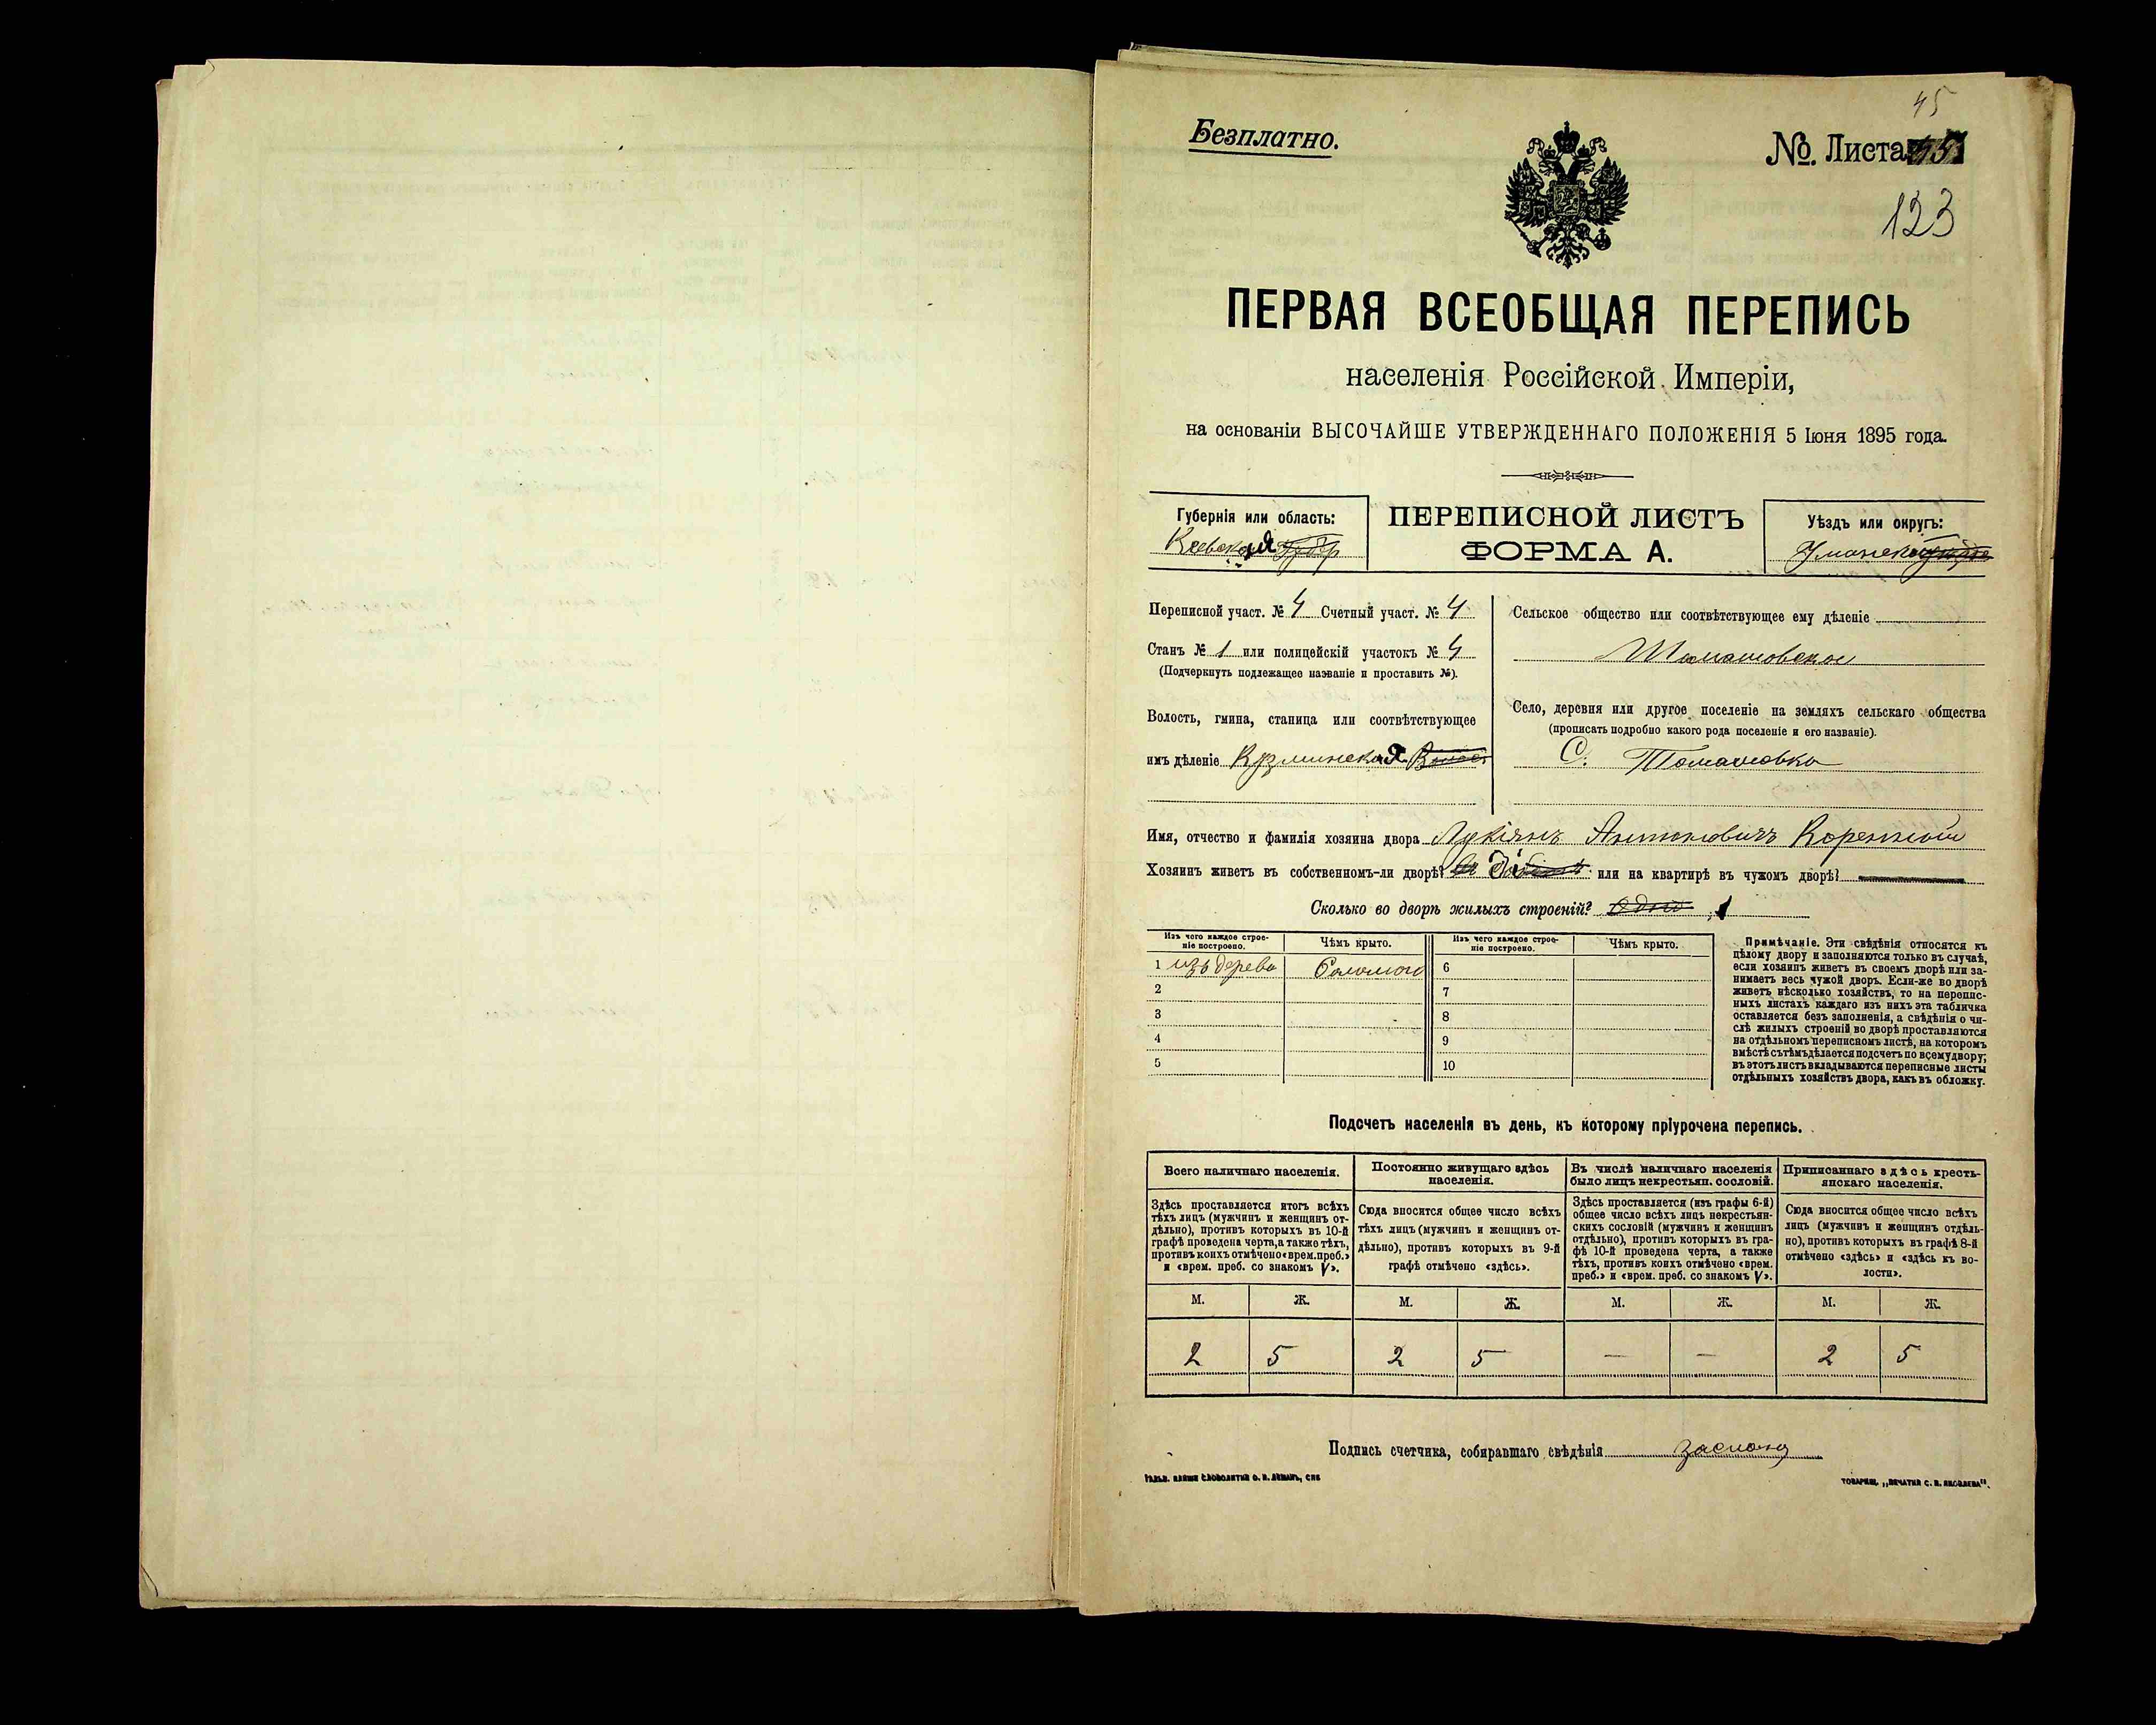 45
Безплатно.
№. Листа 45
123
ПЕРВАЯ ВСЕОБЩАЯ ПЕРЕПИСЬ
населенія Россійской Имперіи,
на основаніи ВЫСОЧАЙШЕ УТВЕРЖДЕННАГО ПОЛОЖЕНІЯ 5 Іюня 1895 года.
Губернія или область:
Кіевская Губер
ПЕРЕПИСНОЙ ЛИСТЪ
ФОРМА А.
Уѣздъ или округъ:
Уманскій
Переписной участ. № 4 Счетный участ. № 4
Станъ № 1 или полицейскій участокъ № 4
(Подчеркнуть подлежащее названіе и проставить №).
Волость, гмина, станица или соотвѣтствующее
имъ дѣленіе
Сельское общество или соотвѣтствующее ему дѣленіе
Томашовское
Село, деревня или другое поселеніе на земляхъ сельскаго общества
(прописать подробно какого рода поселеніе и его названіе).
С. Томашовка
Имя, отчество и фамилія хозяина двора Лукіянъ Антоновичъ Коренной
Хозяинъ живетъ въ собственномъ-ли дворѣ? или на квартирѣ въ чужомъ дворѣ?
Сколько во дворѣ жилыхъ строеній? Одно 1
Изъ чего каждое строе-
ніе построено.
Чѣмъ крыто.
Изъ чего каждое строе-
ніе построено.
Чѣмъ крыто.
1 изъ дерева Соломою 6
2 7
3 8
4 9
5 10
Примѣчаніе. Эти свѣдѣнія относятся къ
цѣлому двору и заполняются только въ случаѣ,
если хозяинъ живетъ въ своемъ дворѣ или за-
нимаетъ весь чужой дворъ. Если-же во дворѣ
живетъ нѣсколько хозяйствъ, то на перепис-
ныхъ листахъ каждаго изъ нихъ эта табличка
оставляется безъ заполненія, а свѣдѣнія о чи-
слѣ жилыхъ строеній во дворѣ проставляются
на отдѣльномъ переписномъ листѣ, на которомъ
вмѣстѣ съ тѣмъ дѣлается подсчетъ по всему двору;
въ этотъ листъ вкладываются переписные листы
отдѣльныхъ хозяйствъ двора, какъ въ обложку.
Подсчетъ населенія въ день, къ которому пріурочена перепись.
Всего наличнаго населенія.
Здѣсь проставляется итогъ всѣхъ
тѣхъ лицъ (мужчинъ и женщинъ от-
дѣльно), противъ которыхъ въ 10-й
графѣ проведена черта, а также тѣхъ,
противъ коихъ отмѣчено «врем. преб.»
и «врем. преб. со знакомъ V».
Постоянно живущаго здѣсь
населенія.
Сюда вносится общее число всѣхъ
тѣхъ лицъ (мужчинъ и женщинъ от-
дѣльно), противъ которыхъ въ 9-й
графѣ отмѣчено «здѣсь».
Въ числѣ наличнаго населенія
было лицъ некрестьян. сословій.
Здѣсь проставляется (изъ графы 6-й)
общее число всѣхъ лицъ некрестьян-
скихъ сословій (мужчинъ и женщинъ
отдѣльно), противъ которыхъ въ гра-
фѣ 10-й проведена черта, а также
тѣхъ, противъ коихъ отмѣчено «врем.
преб.» и «врем. преб. со знакомъ V».
Приписаннаго здѣсь кресть-
янскаго населенія.
Сюда вносится общее число всѣхъ
лицъ (мужчинъ и женщинъ отдѣль-
но), противъ которыхъ въ графѣ 8-й
отмѣчено «здѣсь» и «здѣсь къ во-
лости».
М. Ж. М. Ж. М. Ж. М. Ж.
2 5 2 5 — — 2 5
Подпись счетчика, собиравшаго свѣдѣнія
ТОВАРИЩ. „ПЕЧАТНЯ С. П. ЯКОВЛЕВА".